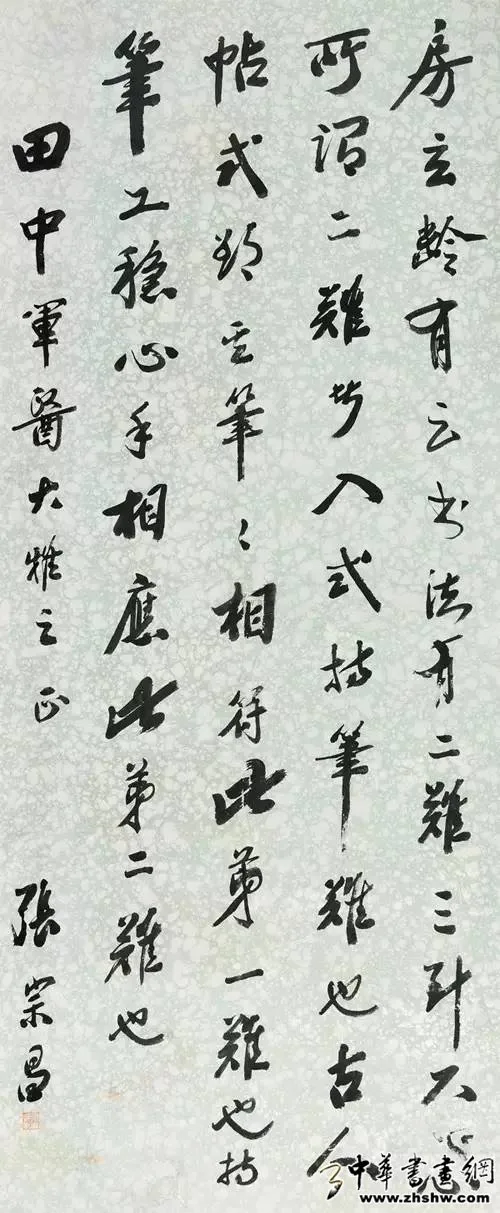 房玄齡有云書法有二難三
所謂二難者入式持筆難也古今
帖式云筆々相符此第一難也持
筆工穩心手相應此第二難也
田中軍醫大雅之正
張宗昌
中華書畫網
www.zhshw.com